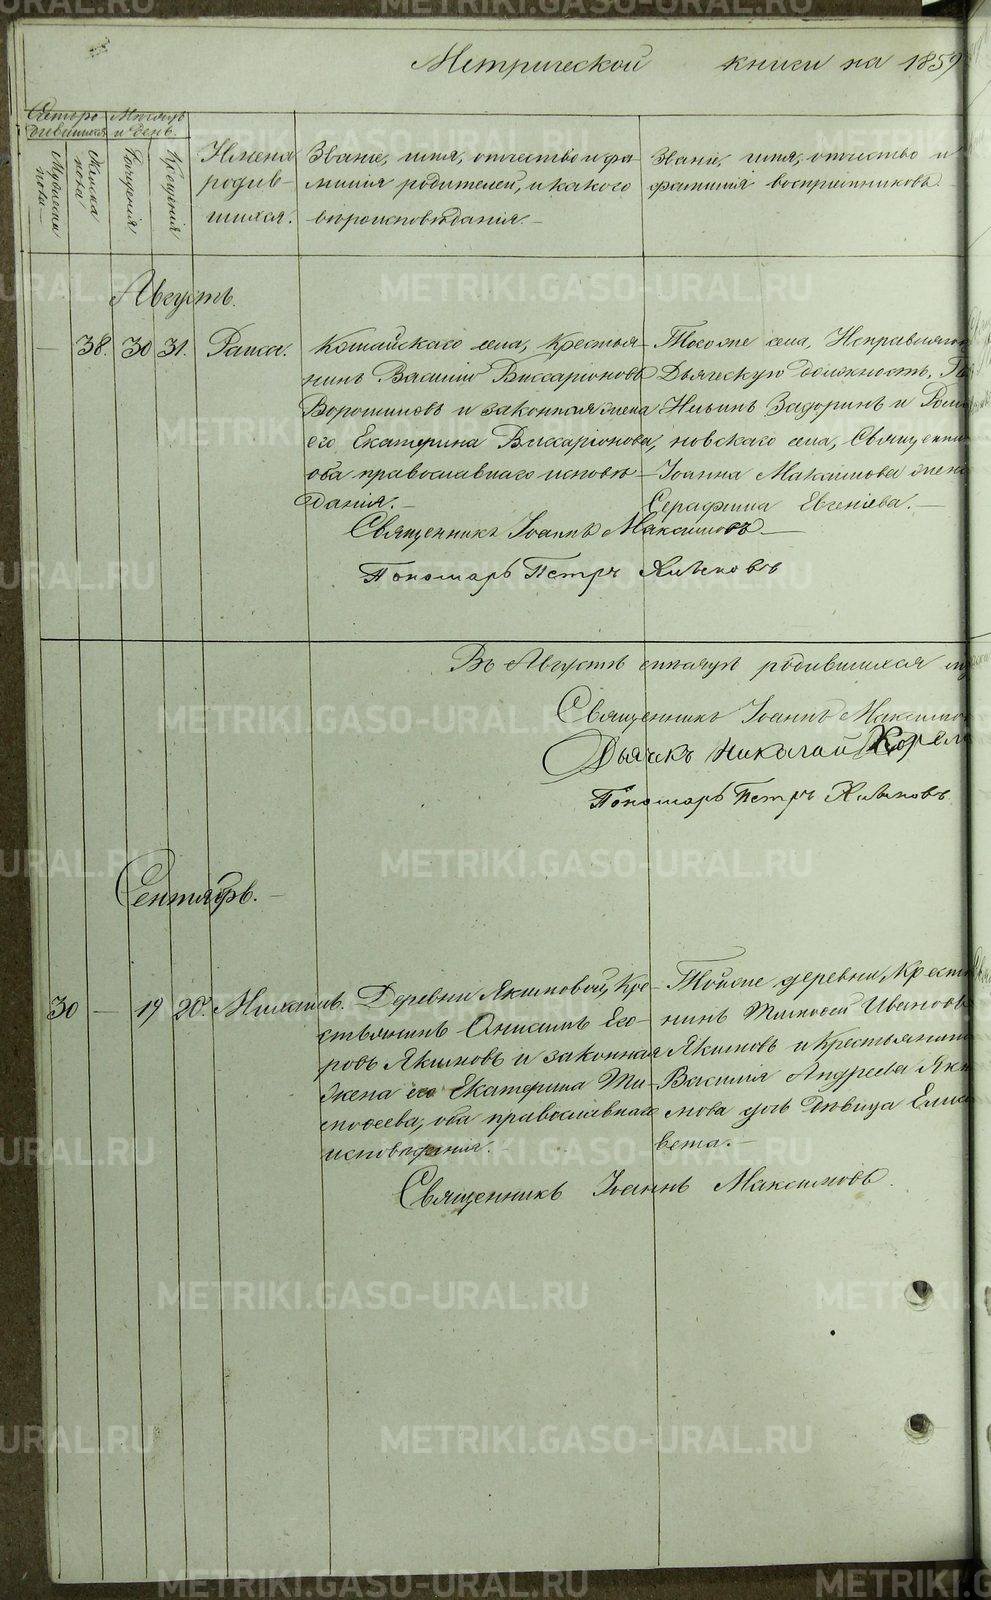 Метрической книги на 1859
Счетъ ро- Мѣсяцъ
дившихся и день.
Мужеска пола
Женска пола
Рожденія
Крещенія
Имена родив- шихся.
Званіе, имя, отчество и фа- милія родителей, и какого вѣроисповѣданія.
Званіе, имя, отчество и фамилія воспріемниковъ
Августъ.
38. 30 31. Раиса.
Кошайскаго села, Крестья-
нинъ Василій Виссаріоновъ
Ворошиловъ и законная жена
его Екатерина Виссаріонова,
оба православнаго исповѣ-
данія.
Тогоже села, Исправляю
Дьяческую должность,
Ильинъ Задоринъ и Рома
новскаго села, Священни
Іоанна Максимова жена
Серафима Евгеніева.
Священникъ Іоаннъ Максимовъ
Пономарь Петръ
Въ Августѣ мѣсяцѣ родившихся
Священникъ Іоаннъ Максимов
Дьячекъ Николай
Пономарь Петръ
Сентябрь.
30 19 20. Михаилъ.
Деревни Якимовой, Кре-
стьянинъ Анисимъ Его-
ровъ Якимовъ и законная
жена его Екатерина Ти-
мофеева, оба православнаго
исповѣданія.
Тойже деревни, Крестья
нинъ Тимофей Ивановъ
Якимовъ и Крестьянина
Василія Андреева Яки
мова дочь Дѣвица Елиса
вета.
Священникъ Іоаннъ Максимовъ.
METRIKI.GASO-URAL.RU